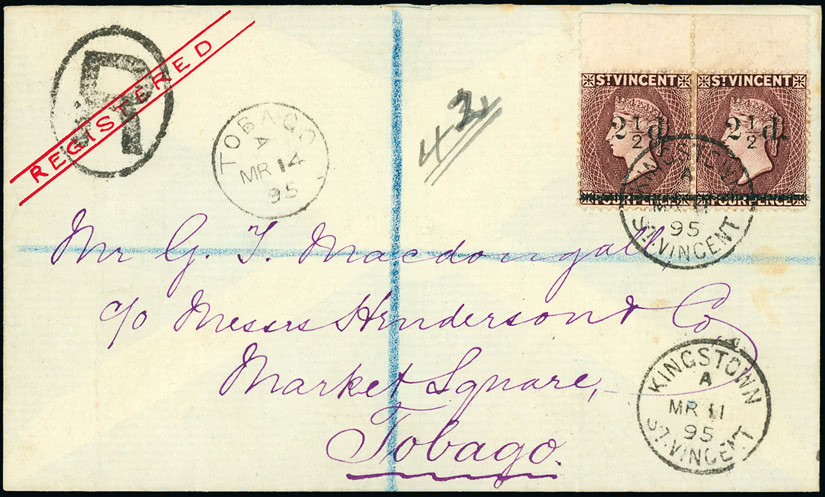 R
REGISTERED
TOBAGO
A
MR 14
95
ST VINCENT
2 1/2 d.
ST VINCENT
2 1/2 d.
KINGSTOWN
A
MR 11
95
ST. VINCENT
Mr G. T. Macdougall,
c/o Messrs Henderson & Co
Market Square,
Tobago.
KINGSTOWN
A
MR 11
95
ST. VINCENT